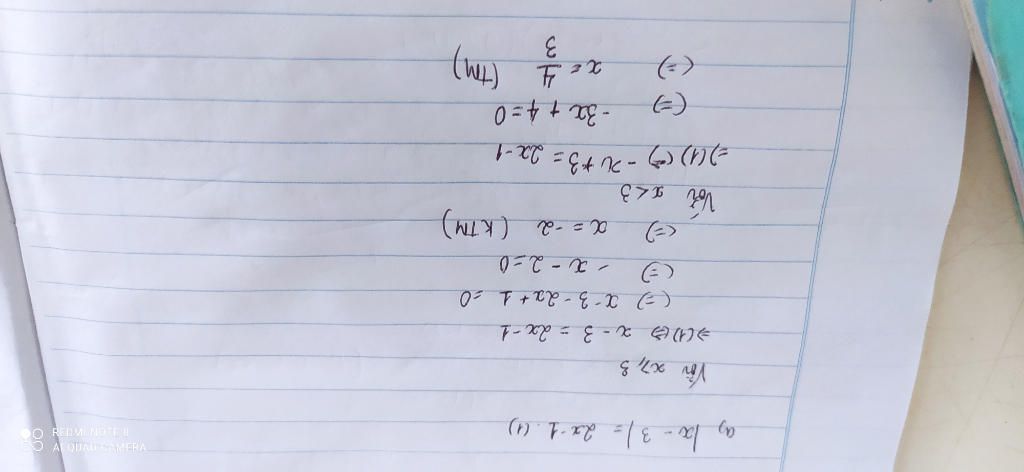 a, |x - 3| = 2x-1. (1)
Với x ⩾ 3
=> (1) (=) x - 3 = 2x-1
(=) x - 3 - 2x + 1 = 0
(=) - x - 2 = 0
(=) x = -2 (KTM)
Với x < 3
=> (1) (=) - x + 3 = 2x-1
(=) -3x + 4 = 0
(=) x = 4/3 (TM)
REDMI NOTE 8
AI QUAD CAMERA